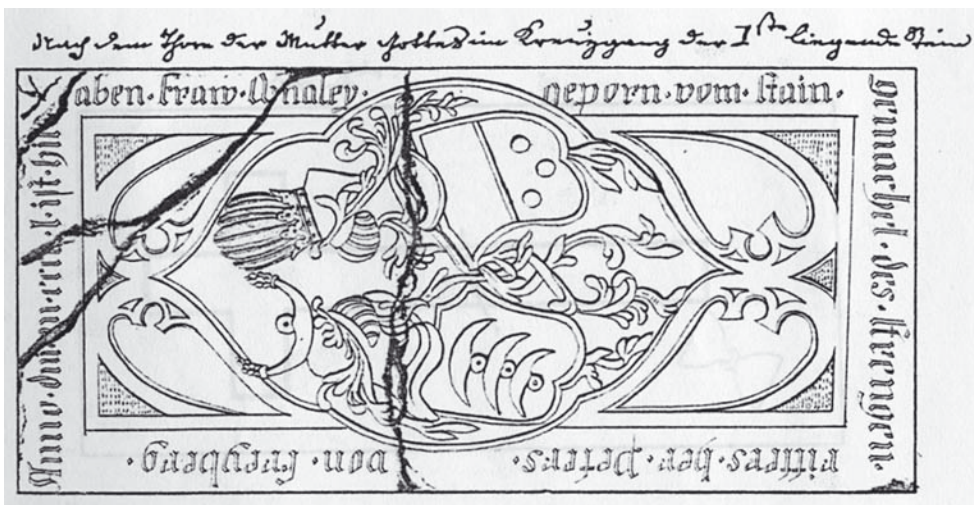 Nach dem Thore der Mutter Gottes im Kreuzgang der 1ste liegende Stein
Anno · ist · hie
aben · fraw · Analey · geporn · vom · stain ·
gemachel · des · strengen ·
ritters · her · peters · von · freyberg ·